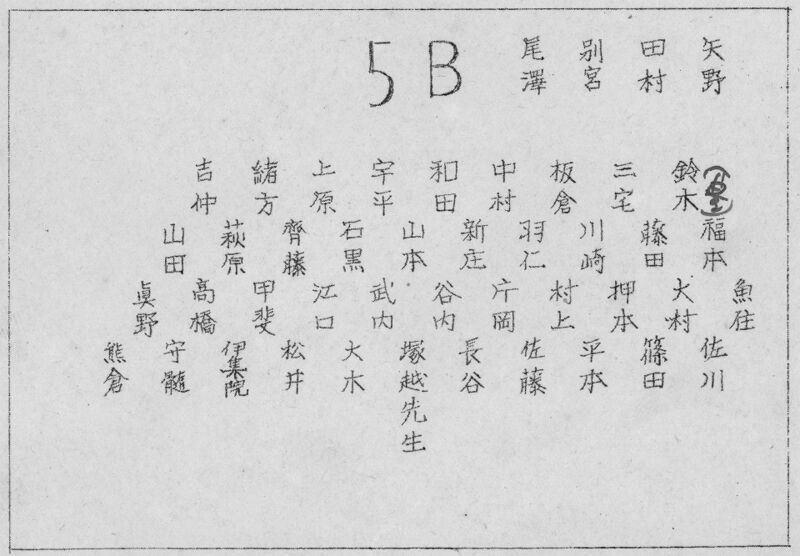 矢野 田村 別宮 尾澤 5B
鈴木 三宅 板倉 中村 和田 宇平 上原 緒方 吉仲
福本 藤田 川崎 羽仁 新庄 山本 石黒 齊藤 萩原 山田
魚住 大村 押本 村上 片岡 谷内 武内 江口 甲斐 高橋 眞野
佐川 篠田 平本 佐藤 長谷 塚越先生 大木 松井 伊集院 守髓 熊倉